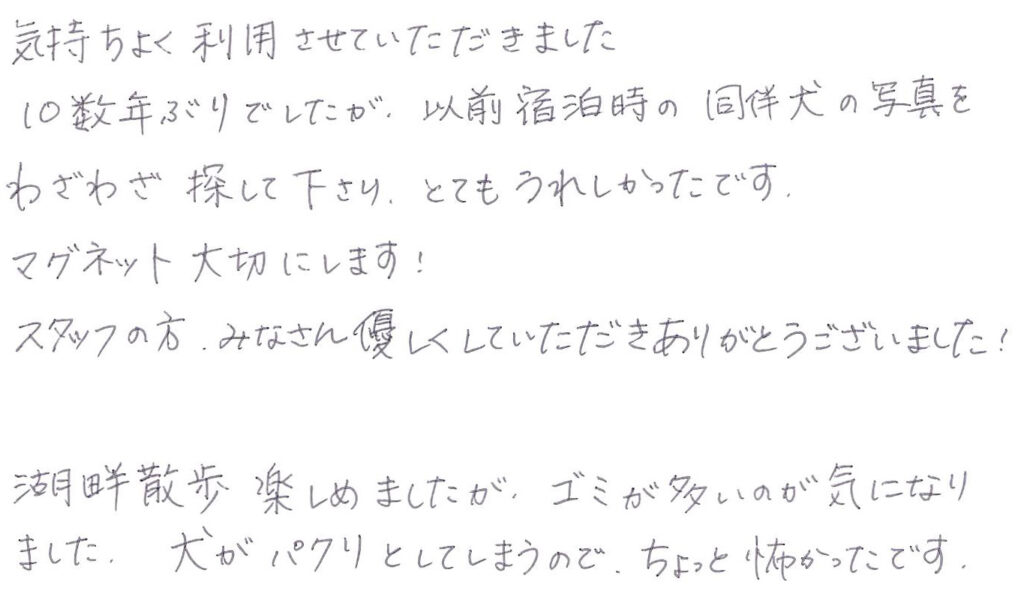 気持ちよく利用させていただきました
10数年ぶりでしたが、以前宿泊時の同伴犬の写真を
わざわざ探して下さり、とてもうれしかったです.
マグネット大切にします!
スタッフの方、みなさん優しくしていただきありがとうございました!
湖畔散歩楽しめましたが、ゴミが多いのが気になり
ました. 犬がパクリとしてしまうので、ちょっと怖かったです.